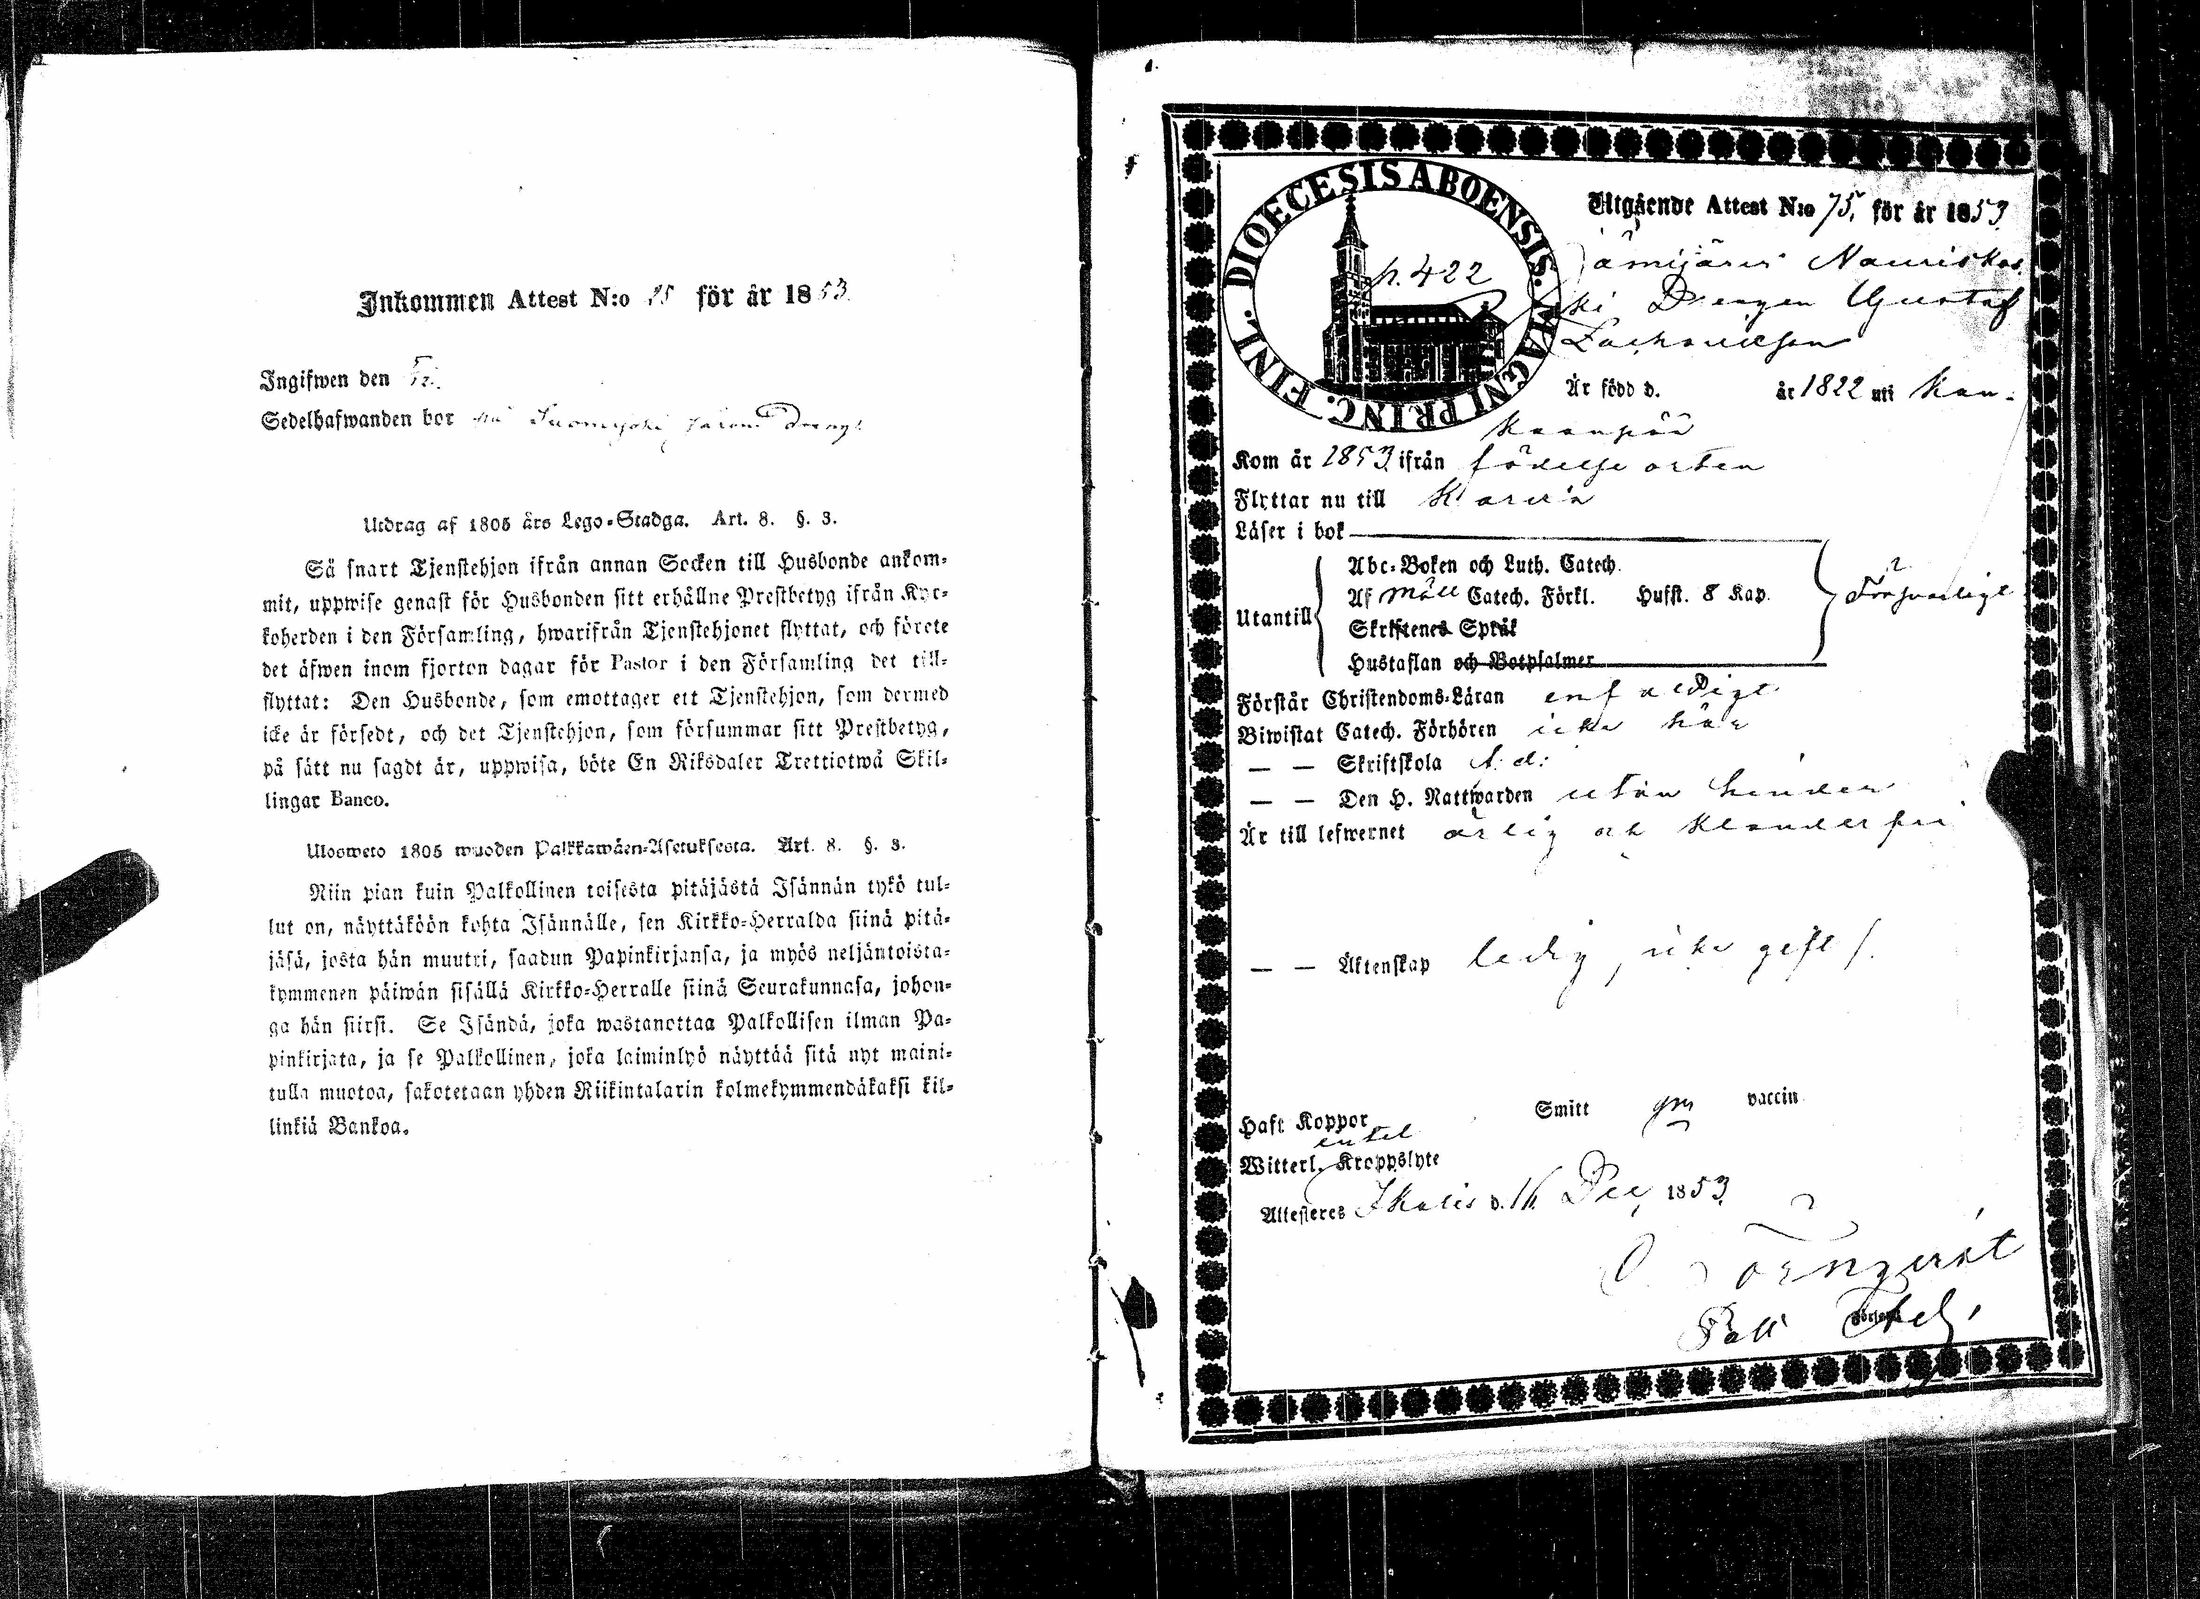 Inkommen Attest N:o 25 för år 1853.
Ingifwen den
Sedelhafwanden bor på Suomijoki såsom dreng
Utdrag af 1805 års Lego-Stadga. Art. 8. §. 3.
Så snart Tjenstehjon ifrån annan Socken till Husbonde ankom-
mit, uppwise genast för Husbonden sitt erhållne Prestbetyg ifrån Kyr-
koherden i den Församling, hwarifrån Tjenstehjonet flyttat, och förete
det äfwen inom fjorton dagar för Pastor i den Församling det till-
flyttat: Den Husbonde, som emottager ett Tjenstehjon, som dermed
icke är försedt, och det Tjenstehjon, som försummar sitt Prestbetyg,
på sätt nu sagdt är, uppwisa, böte En Riksdaler Trettiotwå Skil-
lingar Banco.
Ulosweto 1805 wuoden Palkkawäen-Asetuksesta. Art. 8. §. 3.
Niin pian kuin Palkollinen toisesta pitäjästä Isännän tykö tul-
lut on, näyttäköön kohta Isännälle, sen Kirkko-Herralda siinä pitä-
jäsä, josta hän muutti, saadun Papinkirjansa, ja myös neljäntoista-
kymmenen päiwän sisällä Kirkko-Herralle siinä Seurakunnasa, johon-
ga hän siirsi. Se Isändä, joka wastanottaa Palkollisen ilman Pa-
pinkirjata, ja se Palkollinen, joka laiminlyö näyttää sitä nyt maini-
tulla muotoa, sakotetaan yhden Riikintalarin kolmekymmendäkaksi kil-
linkiä Bankoa.
DIOECESIS ABOENSIS. MAGNI PRINC. FINL.
p. 422
Utgående Attest N:o 75, för år 1853
Jämijärvi Nauriskos
ki Drengen Gustaf
Zachariesson
Är född d. år 1822 uti Kan-
kaanpää
Kom år 1853 ifrån födelse orten
Flyttar nu till Karvia
Läser i bok
Abc-Boken och Luth. Catech.
Utantill Af Möll Catech. Förkl. Husst. 8 Kap. Försvarligt
Skriftenes Språk
Hustaflan och Botpsalmer
Förstår Christendoms-Läran enfaldigt
Biwistat Catech. Förhören icke här
— — Skriftskola
— — Den H. Nattwarden utan hinder
Är till lefwernet ärlig och klanderfri
— — Äktenskap ledig, icke gift
Haft Koppor Smitt gm vaccin
Witterl. Kroppslyte
Attesteras Ikalis d. 16 Dec. 1853
Törnqvist